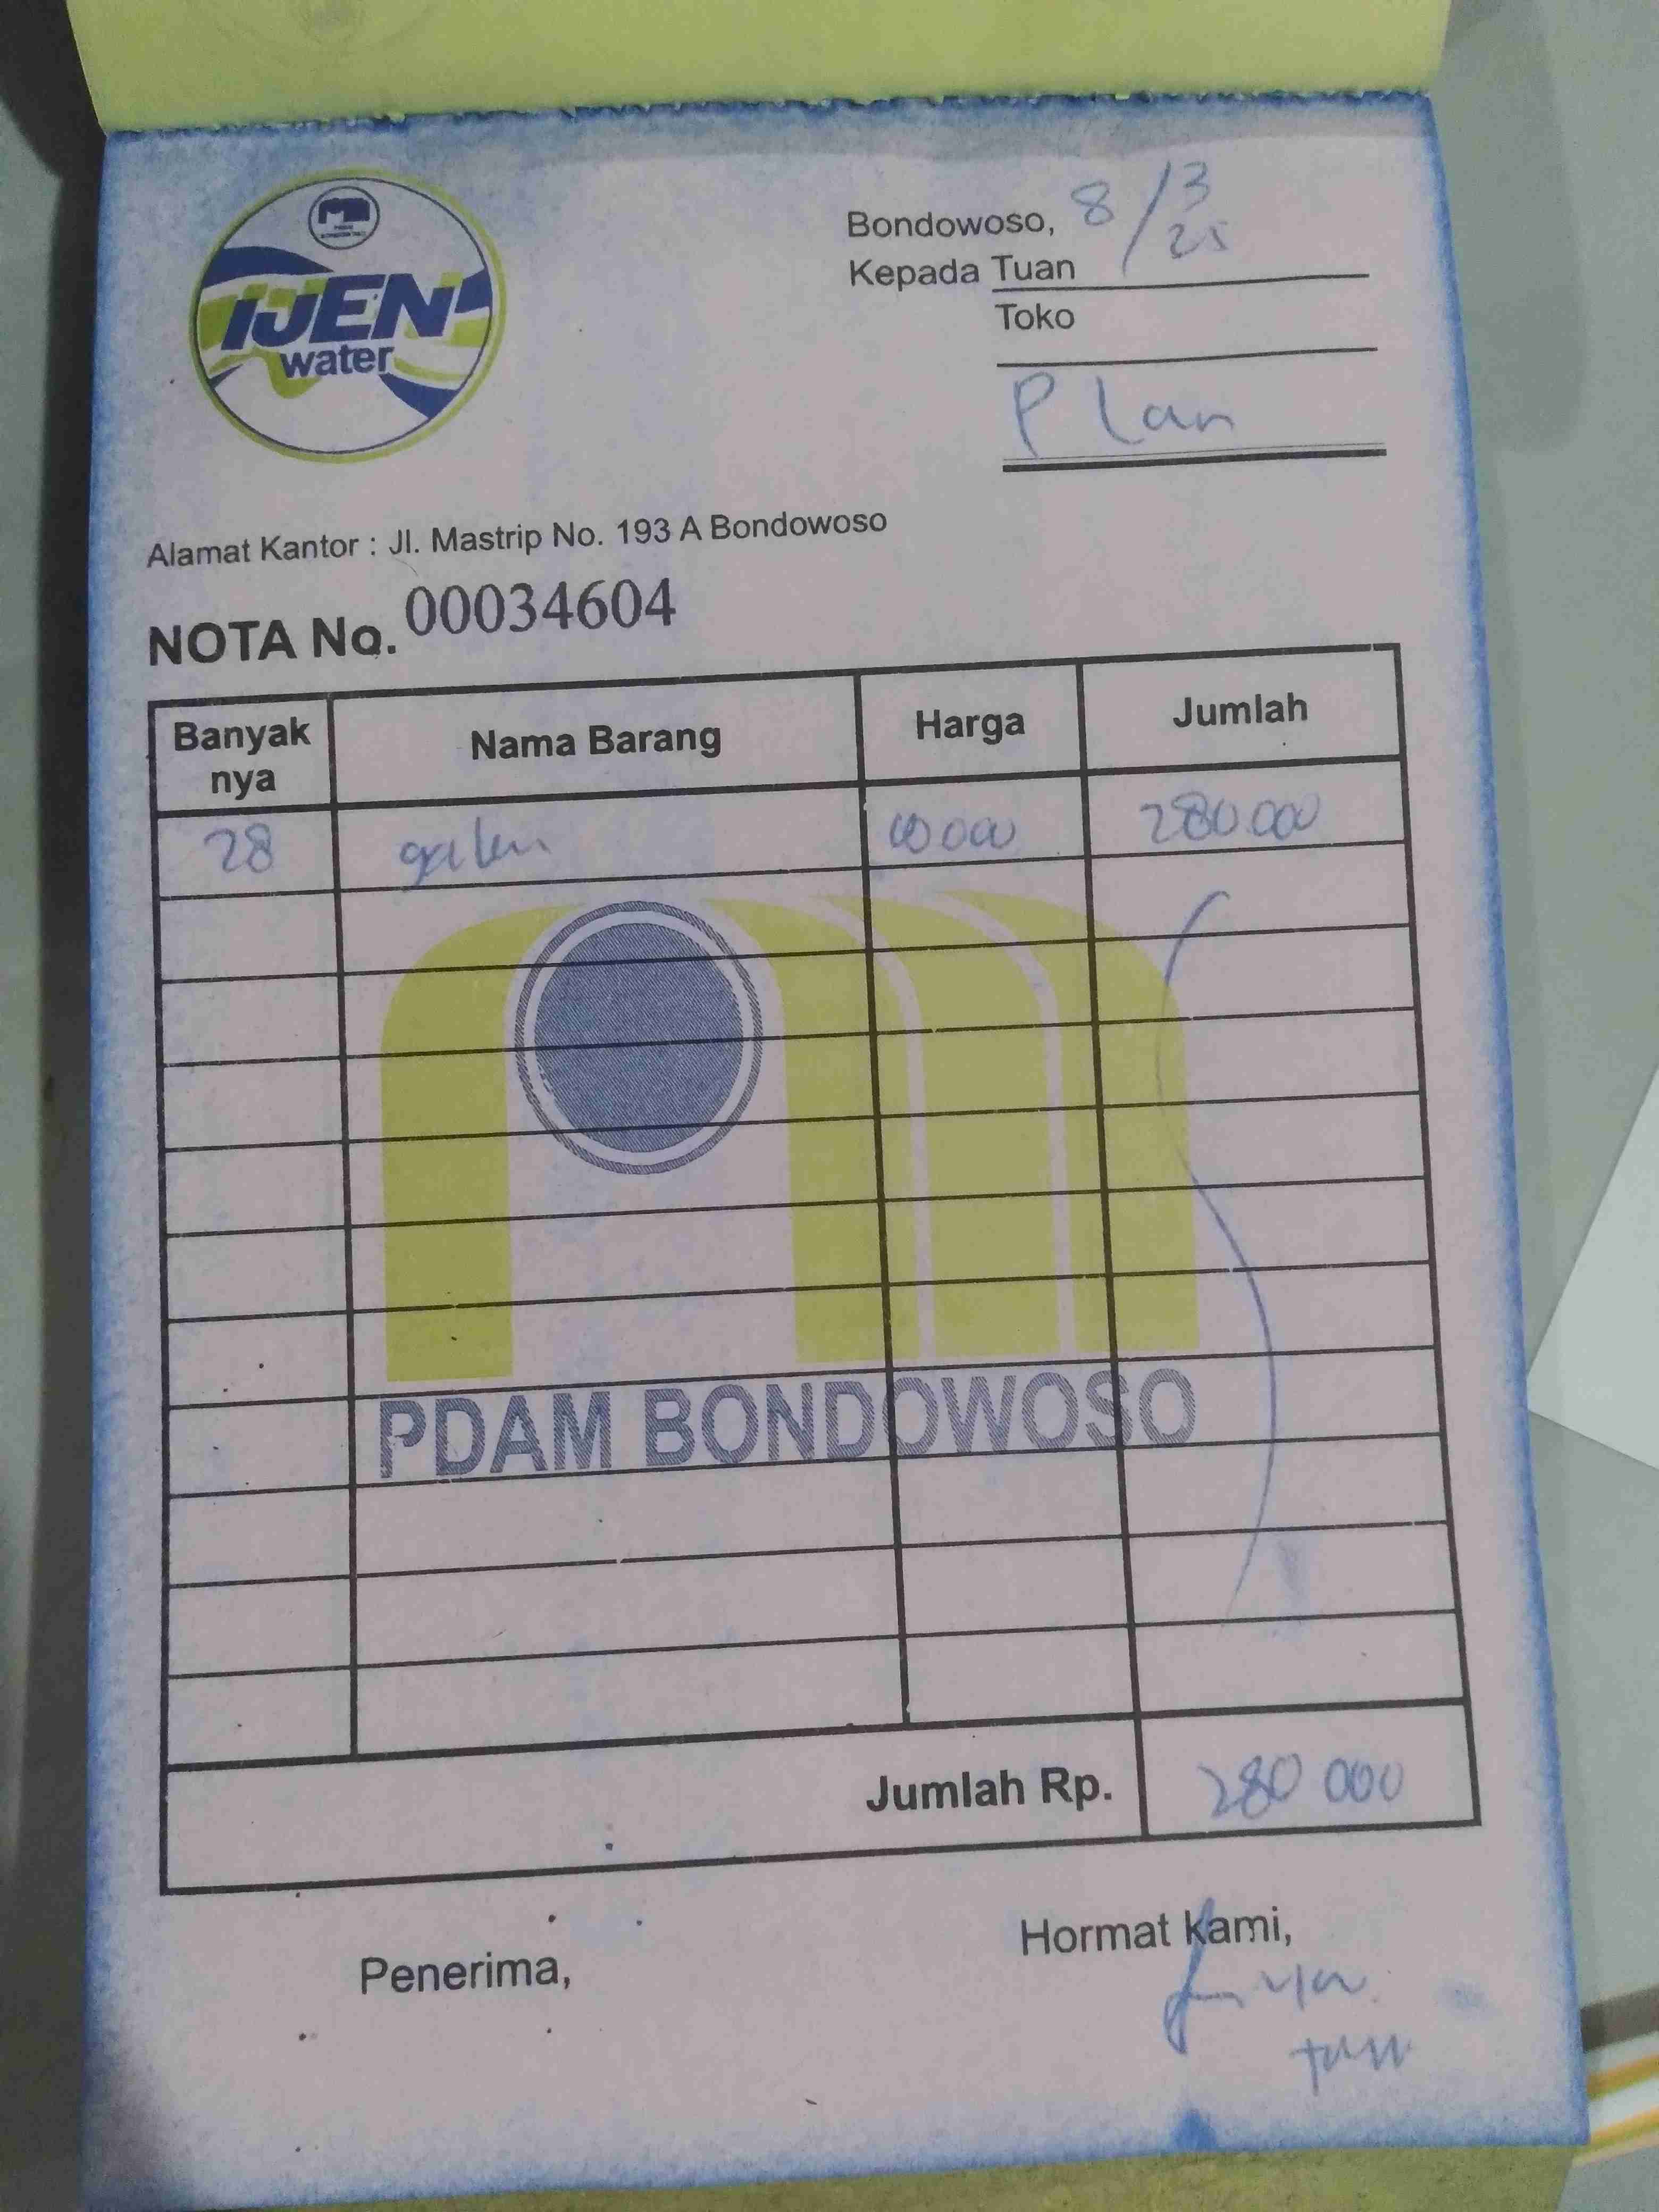 IJEN
water
Bondowoso, 8/3 25
Kepada Tuan
Toko
Plan
Alamat Kantor : Jl. Mastrip No. 193 A Bondowoso
NOTA No. 00034604
Banyak nya Nama Barang Harga Jumlah
28 galon 10000 280.000
PDAM BONDOWOSO
Jumlah Rp. 280 000
Penerima,
Hormat Kami,